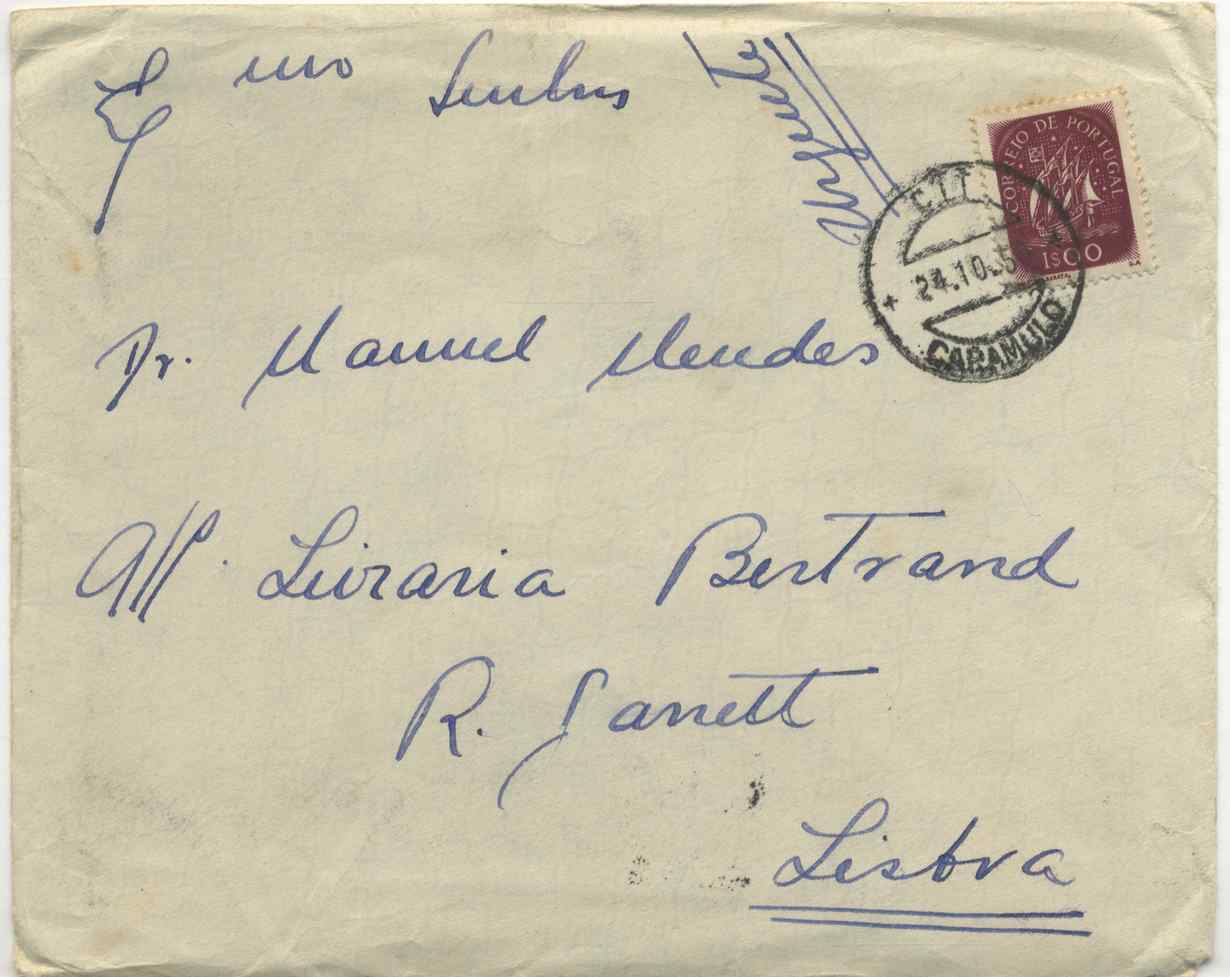 Exmo Senhor
Urgente
CORREIO DE PORTUGAL
1$00
C.T.T.
24.10.5
CARAMULO
Dr. Manuel Mendes
Livraria Bertrand
R. Garrett
Lisboa